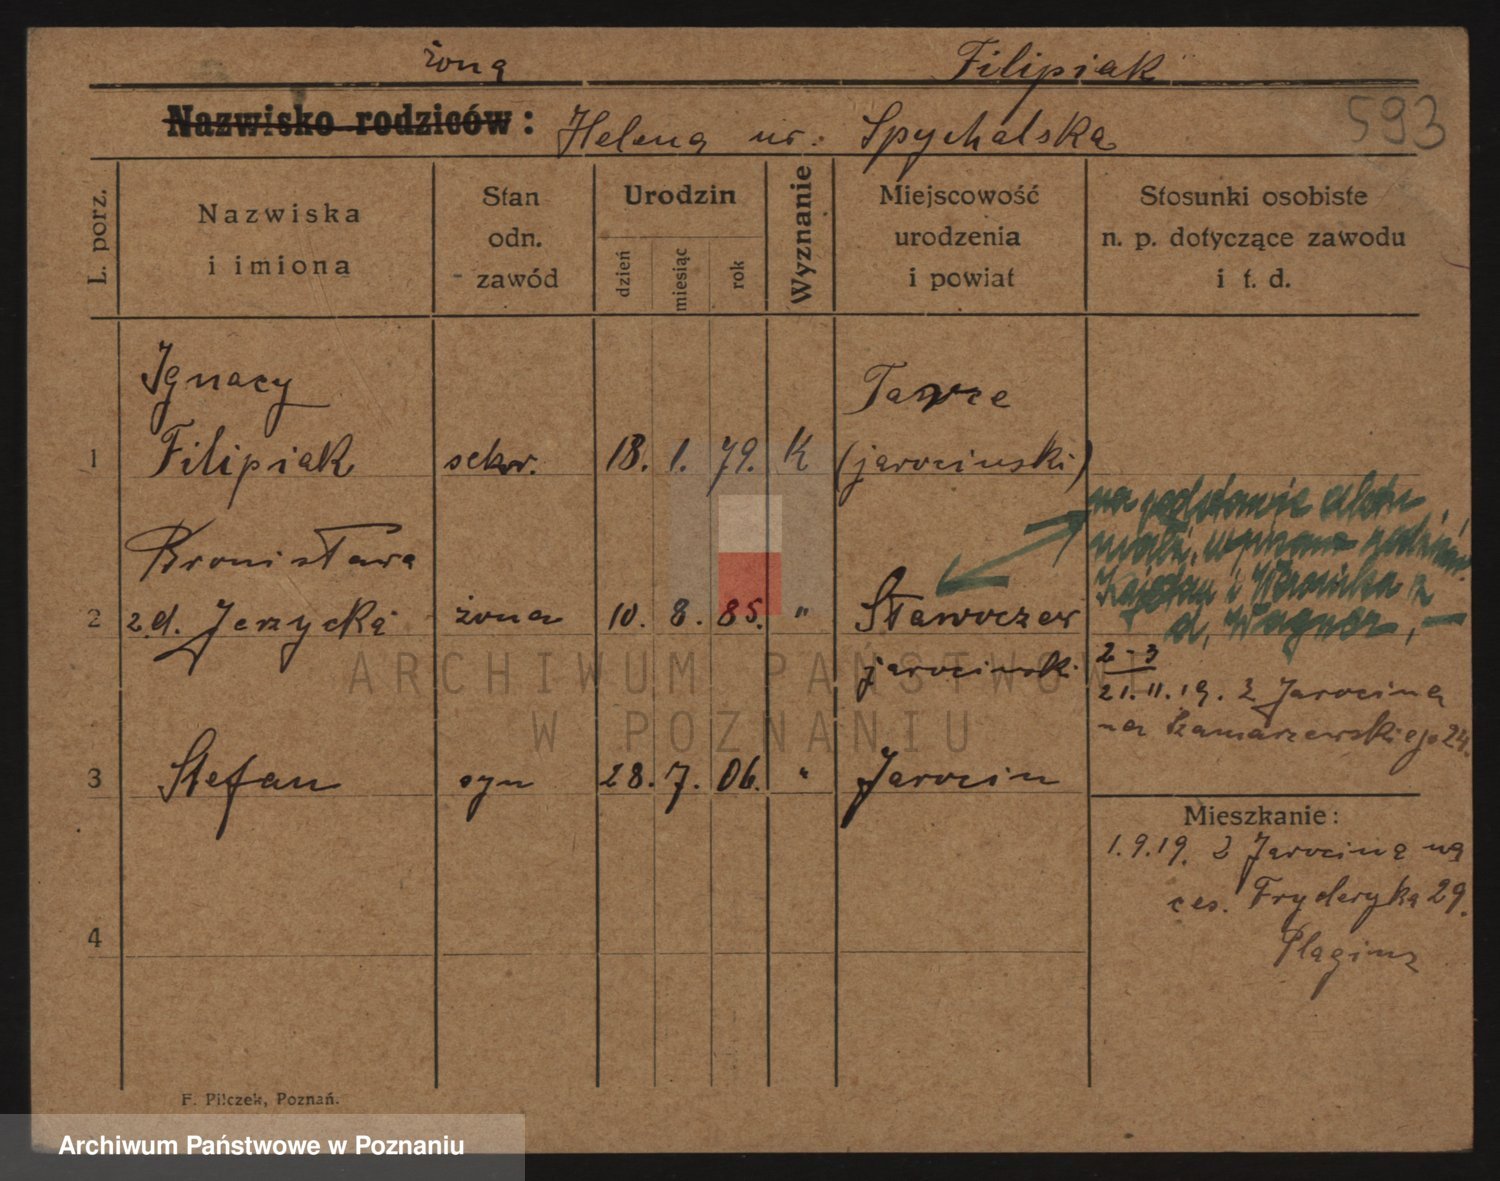 żona Filipiak
Nazwisko rodziców: Helena ur. Spychalska
593
L. porz.
Nazwiska
i imiona
Stan
odn.
zawód
Urodzin
dzień
miesiąc
rok
Wyznanie
Miejscowość
urodzenia
i powiat
Stosunki osobiste
n. p. dotyczące zawodu
i t. d.
Ignacy
1 Filipiak sekr. 18. 1. 79. K (jarocinski)
na podstawie
Bronisława
2 z d. Jerzycka żona 10. 8. 85. "
d. Wagner, —
jarocinski
2-3
21.11.19. z Jarocina
na Szamarzewskiego 24.
3 Stefan syn 28. 7. 06. " Jarocin
Mieszkanie:
1.9.19. z Jarocina na
ces. Fryderyka 29.
4
F. Pilczek, Poznań.
ARCHIWUM PAŃSTWOWE
W POZNANIU
Archiwum Państwowe w Poznaniu